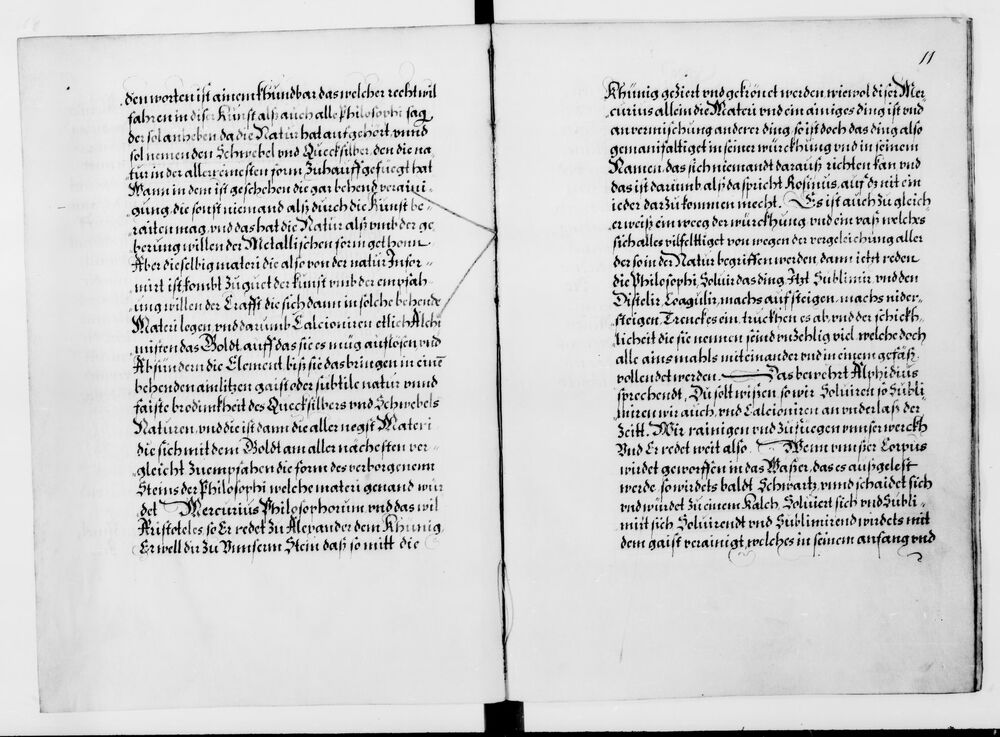 den worten ist ainem khundbar das welcher recht wil
fahren in diser Kunst alß auch alle Philosophi sag
der sol anheben da die Natur hat aufgehört, vnnd
sol nemen den Schwebel vnd Quecksilber, den die na
tur in der allerreinesten form zuhauff gefuegt hat
Wann in dem ist geschehen die gar behend verainj=
gung, die sonst niemand alß durch die Kunst be=
raiten mag, vnd das hat die Natur alß vmb der ge
berung willen der Metallischen form gethonn
Aber dieselbig materi die also von der natur Infor=
mirt ist kombt zu guet der kunst vmb der empfah
ung willen der Crafft die sich dann in solche behende
Materi legen, vnd darumb Calcioniren etlich Alchi
misten das Goldt auff das sie es mug auflösen vnd
Absündern die Element biß sie das bringen in eine͂
behenden amlitzen gaist oder subtile natur vnnd
faiste brodimkheit des Quecksilbers vnd Schwebels
Naturen, vnd die ist dann die aller negst Materj
die sich mit dem Goldt am aller nächesten ver=
gleicht zu empfahen die form des verborgenenn
Steins der Philosophi welche materi genand wür
det Mercurius Philosophorum, vnd das wil
Aristoteles, so Er redet zu Alexander dem Khünig,
Er well dir zu Vnnserm Stein daß so mitt die
11
Khünig geziert vnd gekrönet werden wiewol diser Mer=
curius allein die Materi vnd ein ainiges ding ist vnd
an vermischung anderer ding, so ist doch das ding also
gemanifaltiget in seiner würckhung vnd in seinem
Namen, das sich niemandt darauß richten kan vnd
das ist darumb alß da spricht Rosinus, auf dz nit ein
ieder darzu kommen mecht. Es ist auch zugleich
er weiß ein weeg der würckhung vnd ein vaß welches
sich alles vilfeltiget von wegen der vergleichung aller
der so in der Natur begriffen werden dann ietzt reden
die Philosophi, Soluir das ding, Itzt Sublimir vnd den
Distelir, Coagulir, machs aufsteigen, machs nider=
steigen, Trenckes ein, truckhen es ab, vnd der schickh=
licheit die sie nennen seind vnzehlig viel welche doch
alle ains mahls mit einander vnd in einem gefäß
vollendet werden. Das bewehrt Alphidius
sprechendt, Du solt wissen, so wir Soluiren so Subli
miren wir auch, vnd Calcioniren an vnderlaß der
Zeitt. Wir rainigen vnd zufuegen vnnser werckh
Vnd Er redet weit also. Wenn vnnser Corpus
wirdet geworffen in das Waßer, das es aufgelest
werde, so wirdets baldt Schwartz, vnnd schaidet sich
vnd würdet zu einem Kalch, Soluiert sich vnd Subli=
mirt sich Soluirendt vnd Sublimirend wirdets mit
dem gaist verainigt, welches in seinem anfang vnd